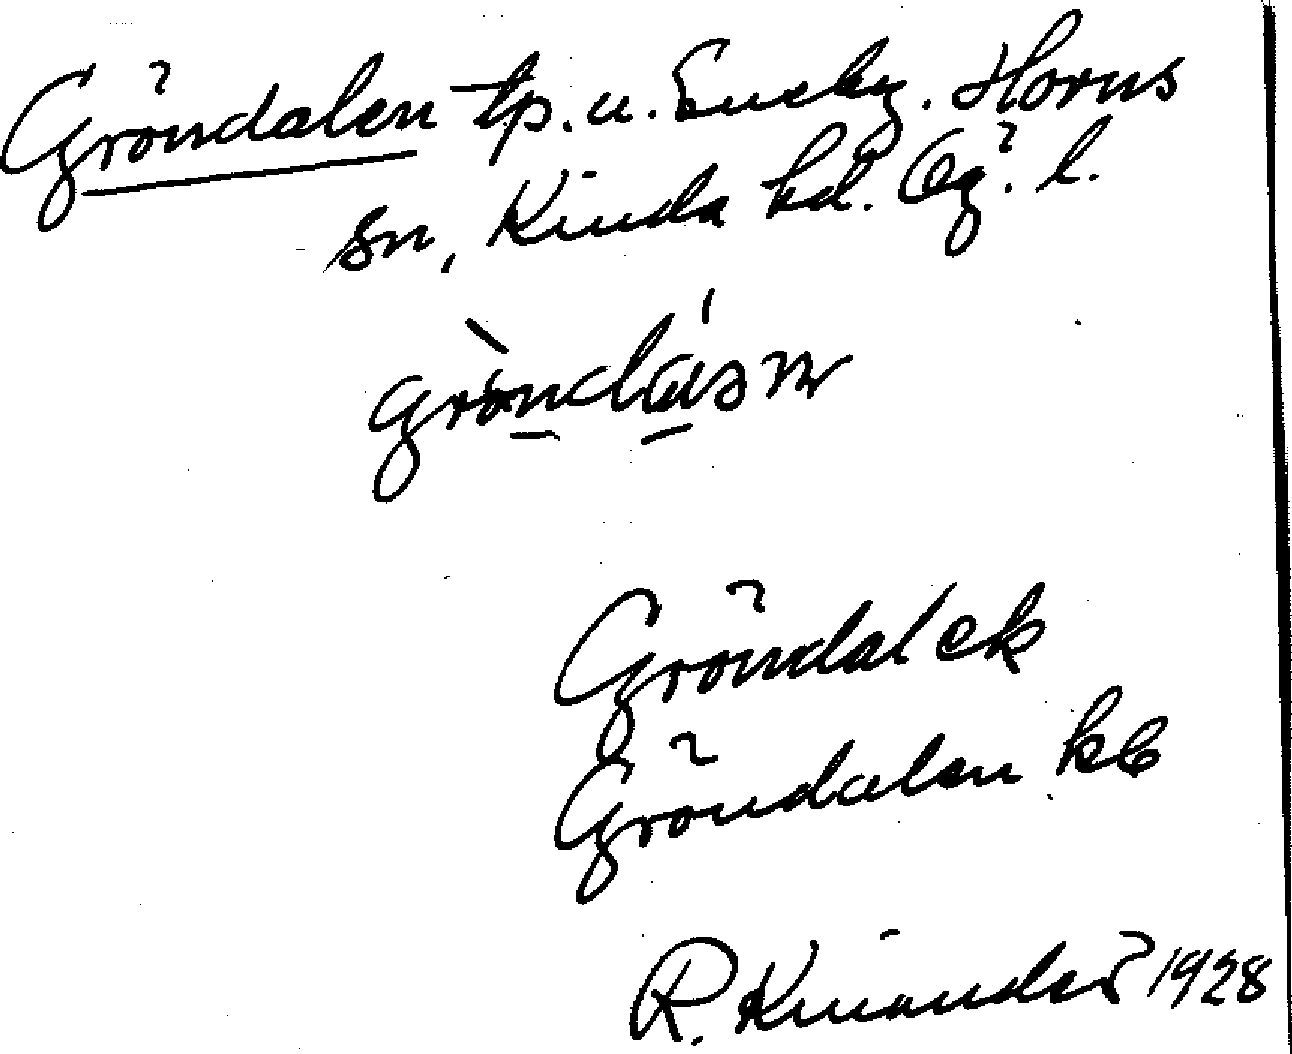 Gröndalen tp. u. Eneby. Horns
sn, Kinda hd. Ög. l.
gröndásn
Gröndal ek
Gröndalen kb
R. Kinander 1928